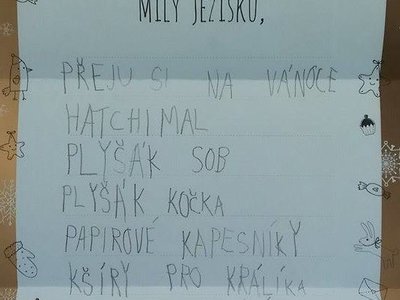 MILÝ JEŽÍŠKU,
PŘEJU SI NA VÁNOCE
HATCHIMAL
PLYŠÁK SOB
PLYŠÁK KOČKA
PAPIROVÉ KAPESNÍKY
KŠÍRY PRO KRÁLÍKA